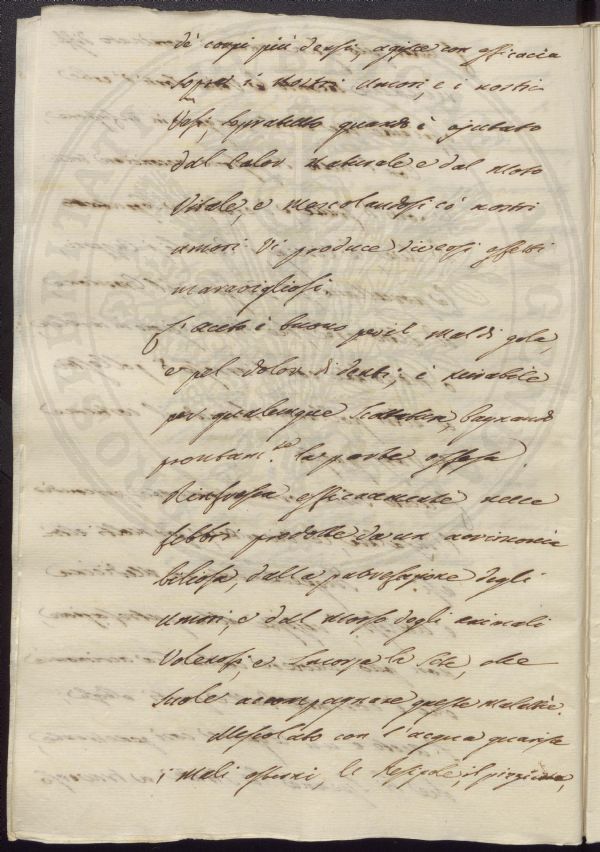 de' corpi più densi, agisce con efficacia
sopra i nostri umori, e i nostri
Vasi, sopratutto quando è ajutato
dal Calor naturale e dal moto
Vitale, e mescolandosi co' nostri
umori vi produce diversi effetti
maravigliosi.
L'aceto è buono per il mal di gola,
e pel dolor di denti; è mirabile
per qualunque Scottatura, bagnando
prontam.te la parte offesa.
Rinfresca efficacemente nelle
febbri prodotte da un acrimonia
biliosa, dalla putrefazione degli
umori, e dal morso degli animali
Velenosi, e smorza la Sete, che
suole accompagnare queste malattie.
Mescolato con l'acqua guarisce
i mali esterni, le Resipole, il